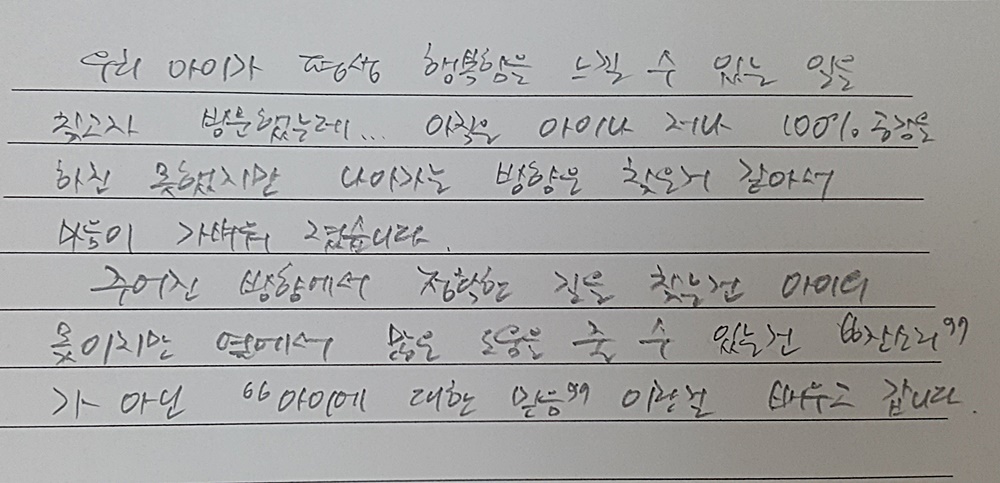 우리 아이가 평생 행복함을 느낄 수 있는 일을
찾고자 방문했는데... 아직은 아이나 저나 100% 공감을
하진 못했지만 나아가는 방향은 찾은거 같아서
마음이 가벼워 졌습니다.
주어진 방향에서 정확한 길을 찾는건 아이의
몫이지만 옆에서 많은 도움을 줄 수 있는건 “잔소리”
가 아닌 “아이에 대한 믿음” 이란걸 배우고 갑니다.